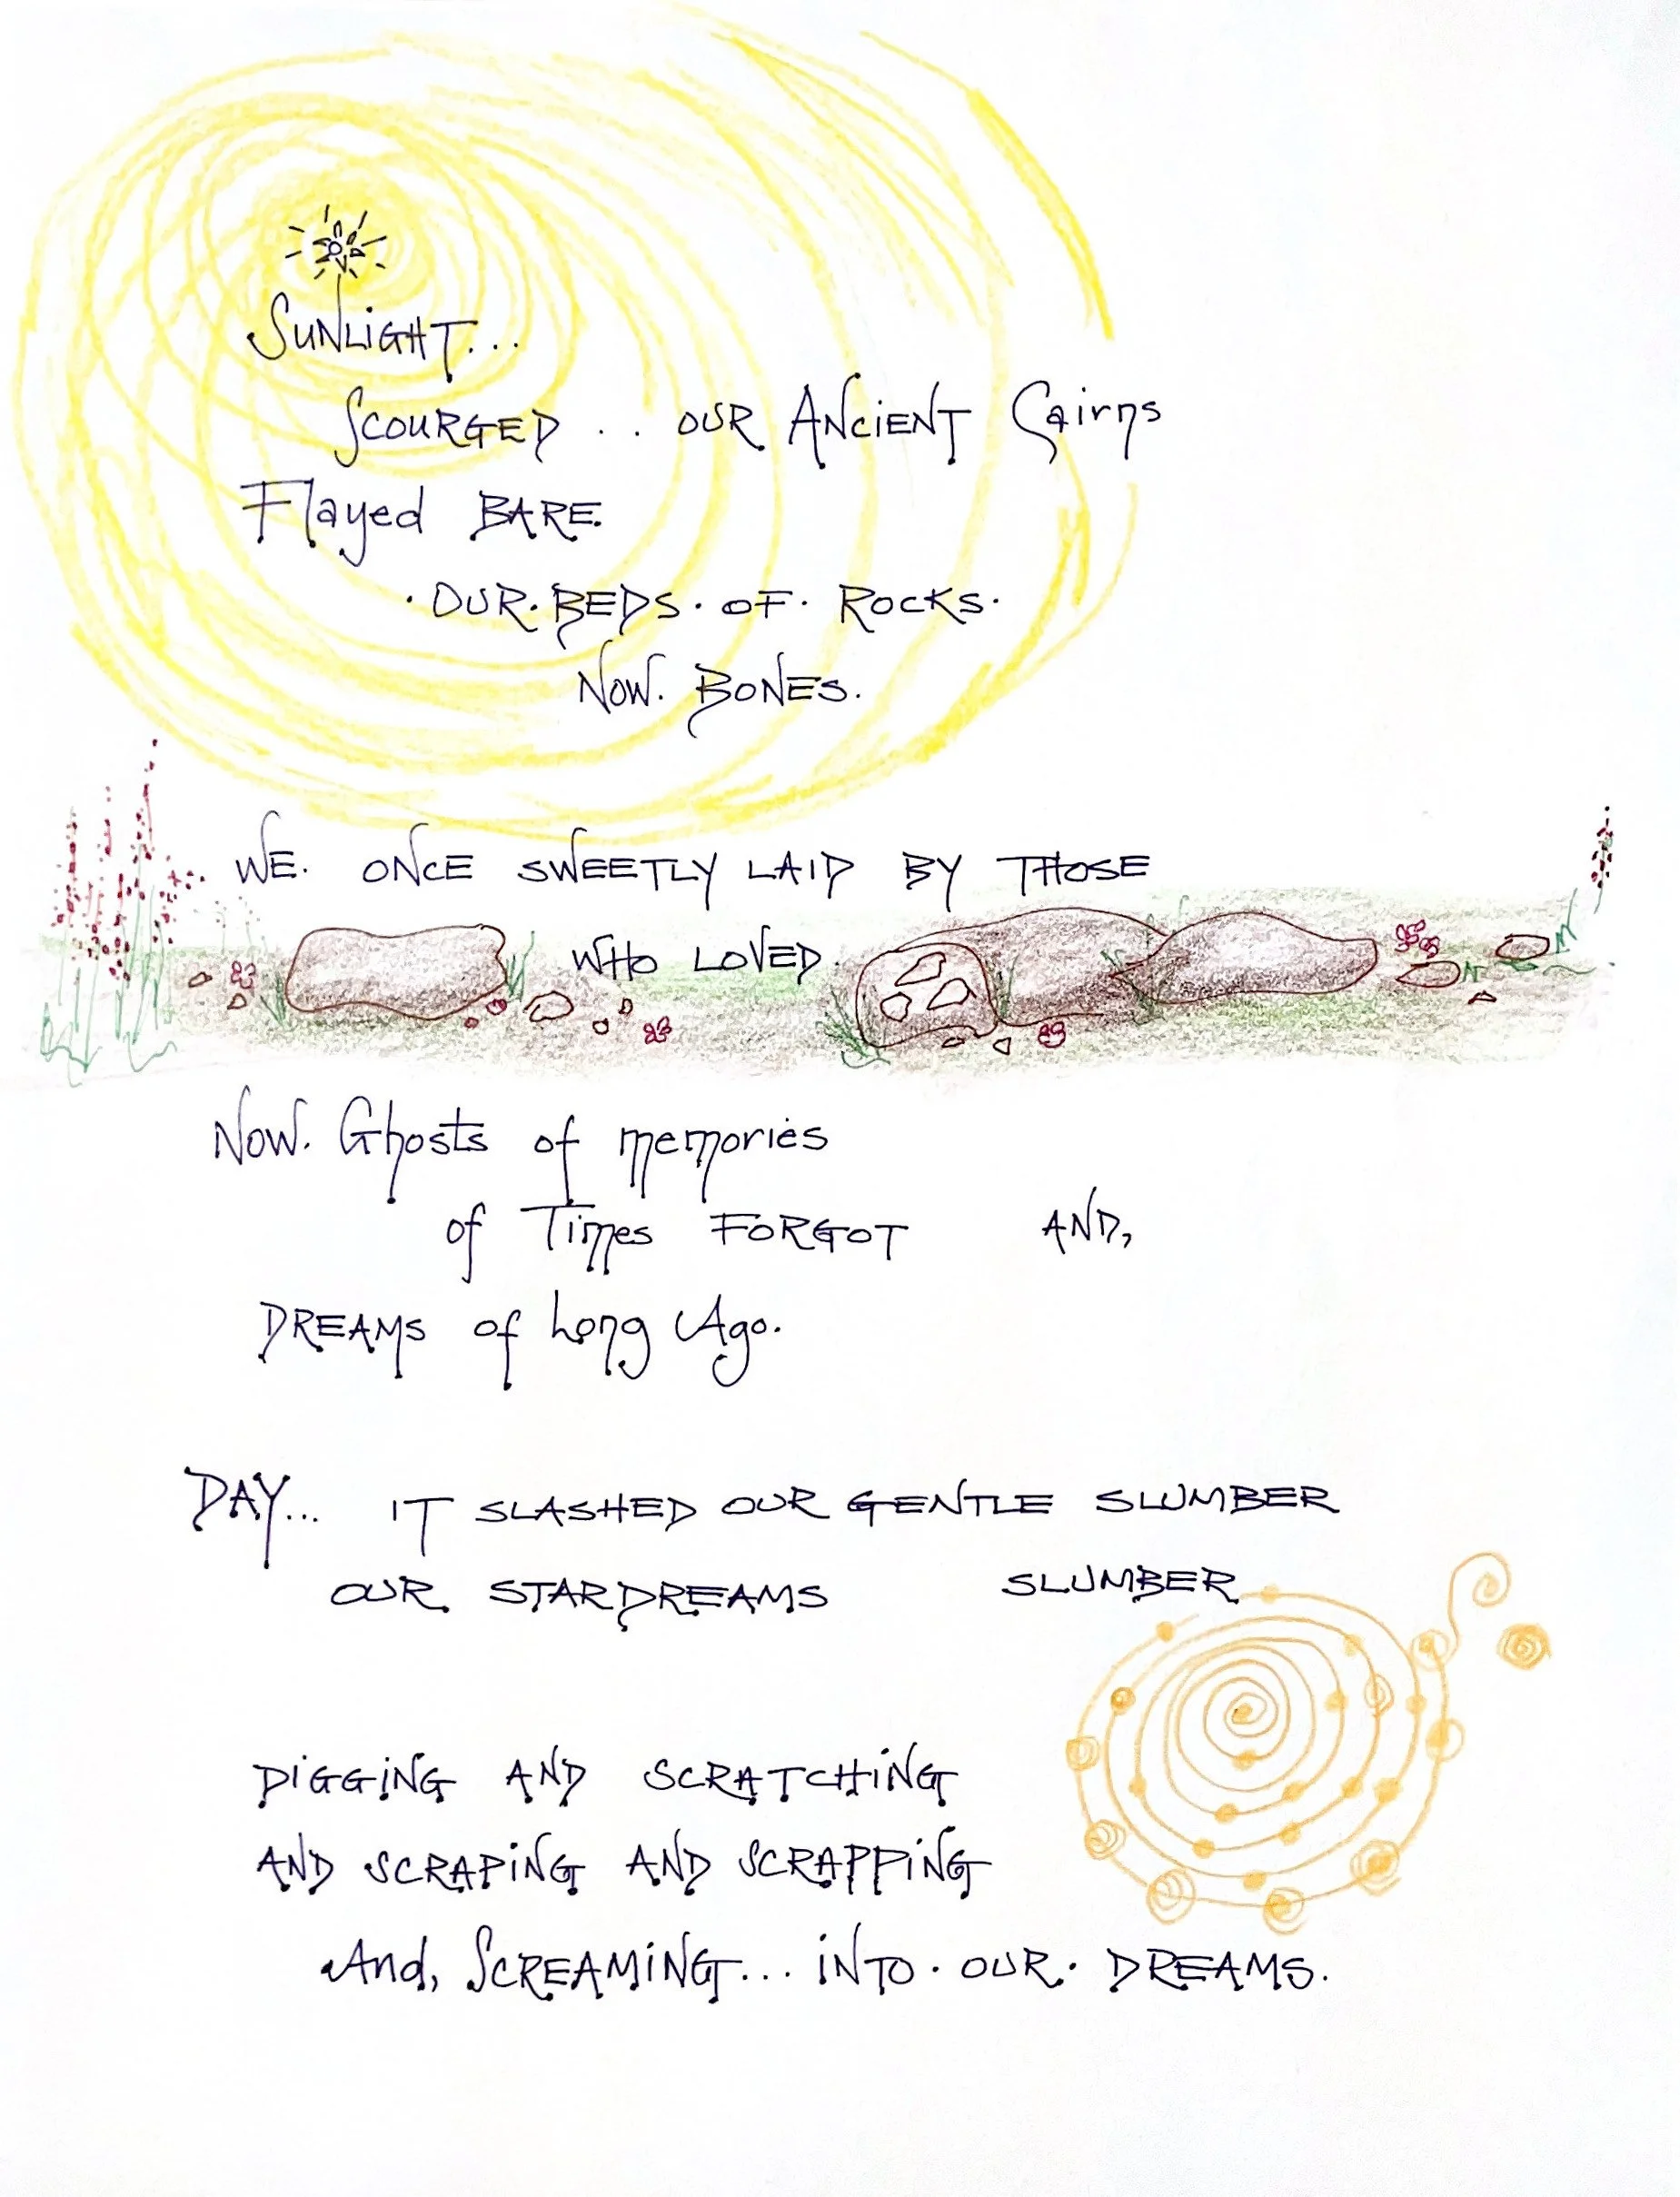 SUNLiGHT...
SCOURGED . . OUR ANCiENT Cairns
Flayed BARE.
· OUR · BEDS · OF · ROCKS ·
NOW. BONES.
WE. ONCE SWEETLY LAID BY THOSE
WHO LOVED.
NOW. Ghosts of memories
of Times FORGOT AND,
DREAMS of Long Ago.
DAY... IT SLASHED OUR GENTLE SLUMBER
OUR STARDREAMS SLUMBER
DiGGiNG AND SCRATCHiNG
AND SCRAPiNG AND SCRAPPiNG
And, SCREAMiNG... iNTO · OUR · DREAMS.